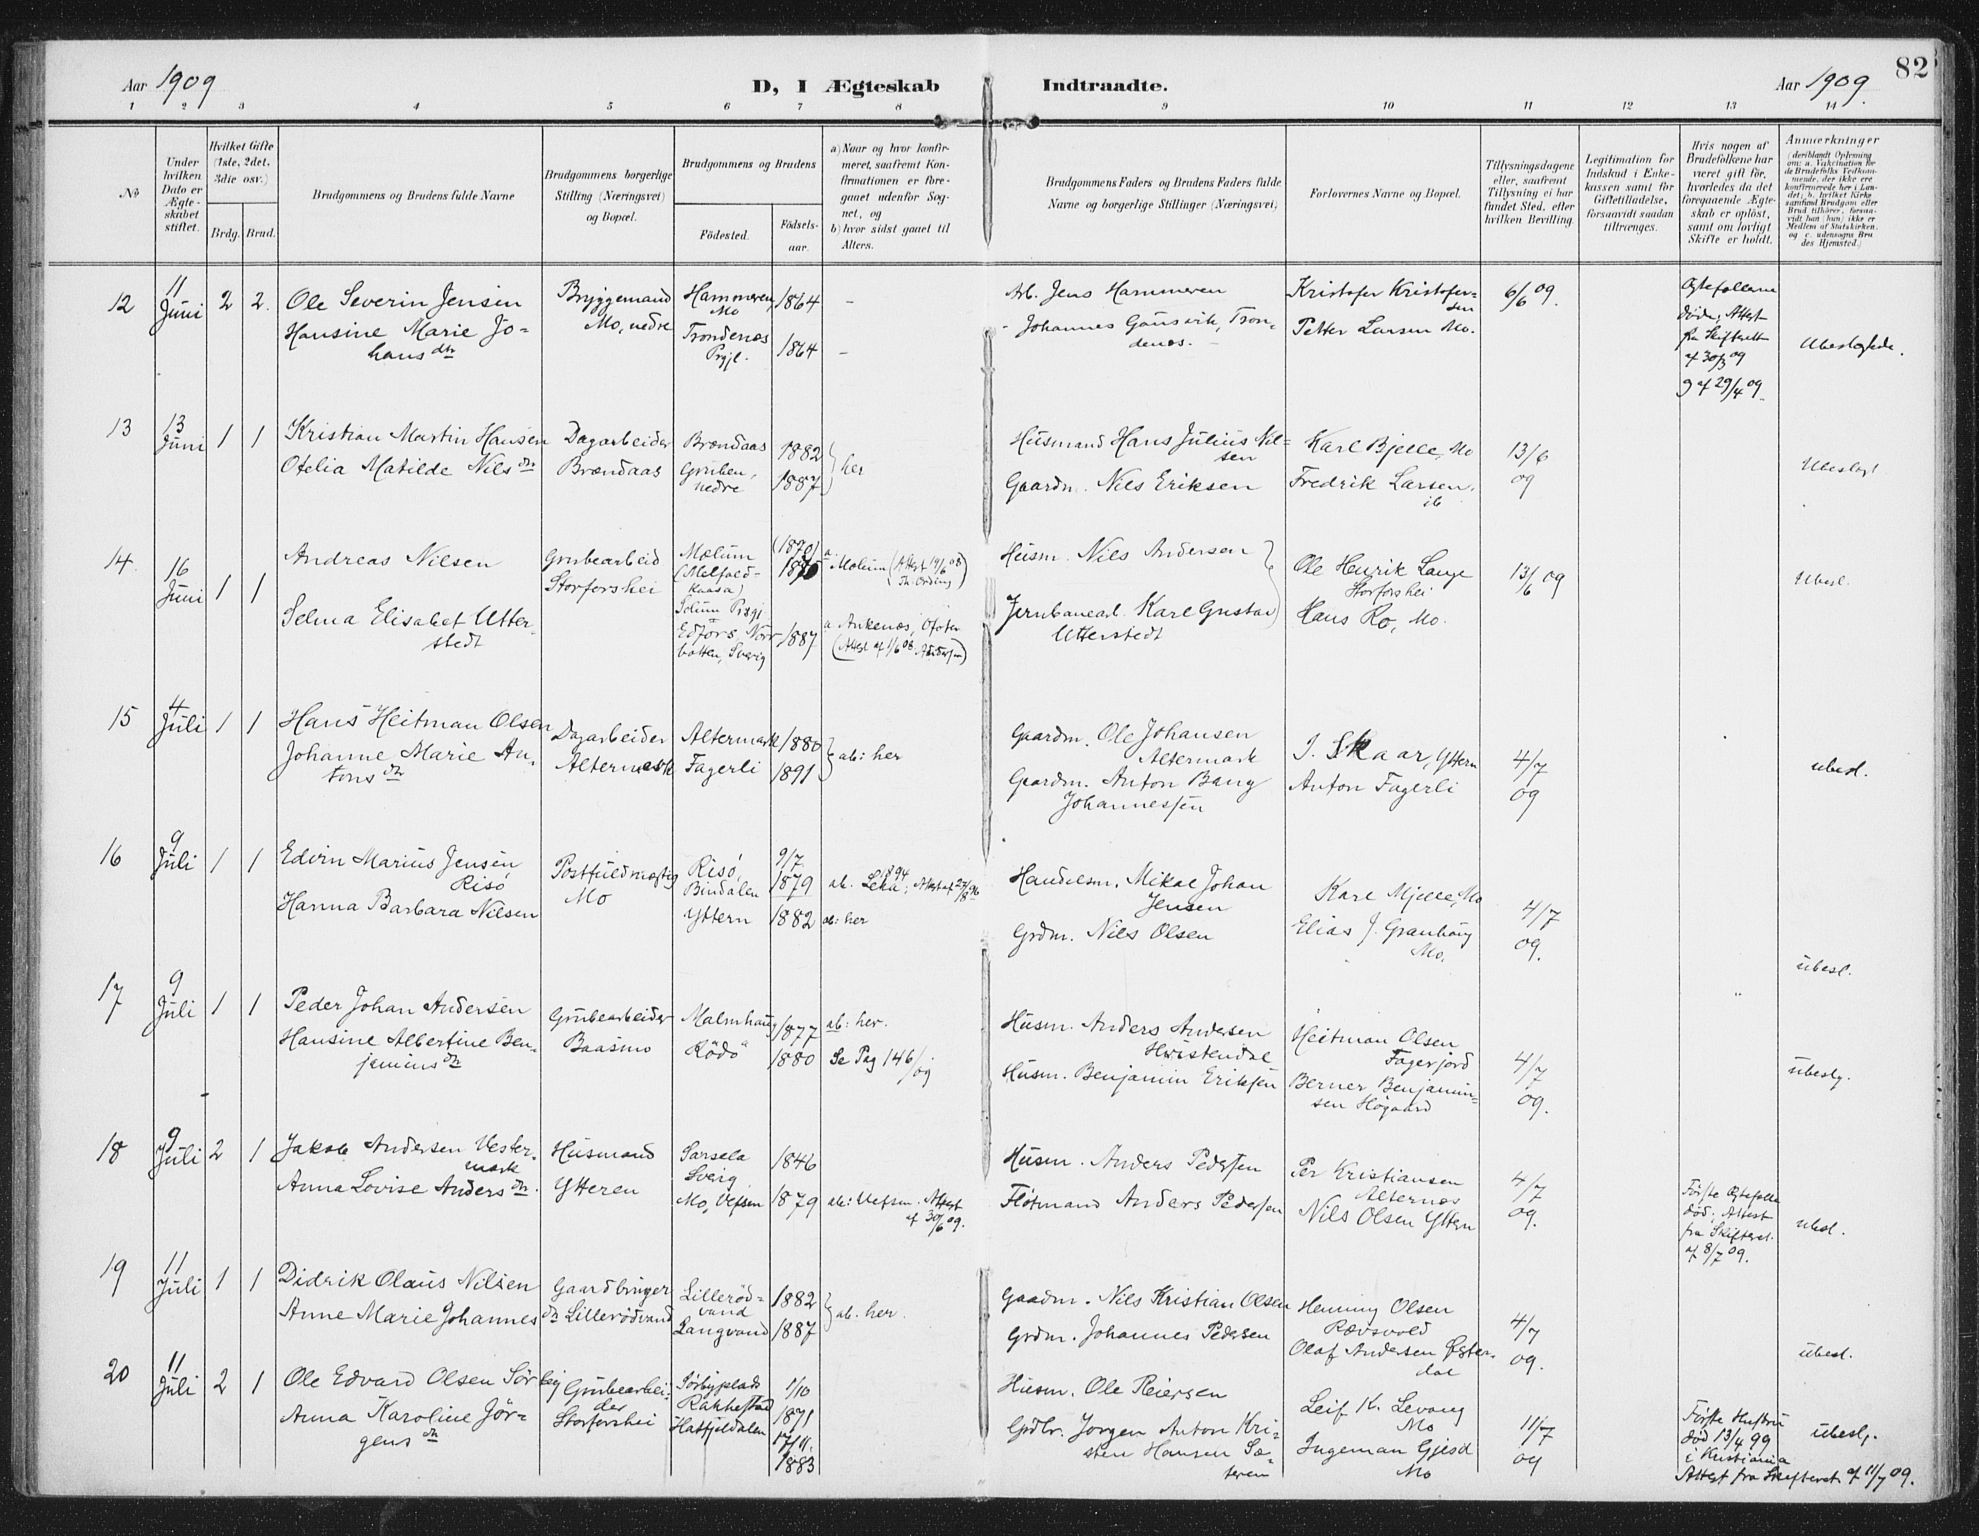 82
Aar 1909
D, I Ægteskab Indtraadte.
Aar 1909.
1 2 3 4 5 6 7 8 9 10 11 12 13 14
No
Under hvilken Dato er Ægteskabet stiftet.
Hvilket Gifte (1ste, 2det, 3die osv.)
Brdg. Brud.
Brudgommens og Brudens fulde Navne
Brudgommens borgerlige Stilling (Næringsvei) og Bopæl.
Brudgommens og Brudens
Fødested.
Fødselsaar.
a) Naar og hvor konfirmeret, saafremt Konfirmationen er foregaaet udenfor Sognet, og
b) hvor sidst gaaet til Alters.
Brudgommens Faders og Brudens Faders fulde Navne og borgerlige Stillinger (Næringsvei)
Forlovernes Navne og Bopæl.
Tillysningsdagene eller, saafremt Tillysning ei har fundet Sted, efter hvilken Bevilling.
Legitimation for Indskud i Enkekassen samt for Giftetilladelse, forsaavidt saadan tiltrænges.
Hvis nogen af Brudefolkene har været gift før, hvorledes da det foregaaende Ægteskab er opløst, samt om lovligt Skifte er holdt.
Anmerkninger (deriblandt Oplysning om: a. Vakcination for de Brudefolks Vedkommende, der ikke ere konfirmerede her i Landet; b. hvilket Kirkesamfund Brudgom eller Brud tilhører, forsaavidt han (hun) ikke er Medlem af Statskirken, og c. udensogns Brudes Hjemsted.)
12
11 Juni
2 2.
Ole Severin Jensen
Hansine Marie Johansdtr
Bryggemand
Mo, nedre
Hammeren, Mo
Trondenæs Prgj.
1864
1864
–
–
Arb. Jens Hammeren
Johannes Gausvik, Trondenæs.
Kristofer Kristofersen
Petter Larsen Mo.
6/6 09.
Ægtefællerne døde; Attest fra Skifteret af 30/3 09 og af 29/4 09.
Ubeslægtede.
13
13 Juni
1 1
Kristian Martin Hansen
Ofelia Matilde Nilsdtr
Dagarbeider
Brændaas
Brændaas
Gruben, nedre
1882
1887
her
Husmand Hans Julius Nilsen
Gaardm. Nils Eriksen
Karl Bjelle, Mo
Fredrik Larsen, ib
13/6 09
Ubeslægt
14
16 Juni
1 1
Andreas Nilsen
Selma Elisabet Utterstedt
Grubearbeid
Storforshei
Mælum
Solum Prgj.
Edfors, Norrbotten, Sverig
1887
a. Mælum
a Ankenæs, Ofoten
Husm. Nils Andersen
Jernbanearb. Karl Gustav Utterstedt
Ole Henrik Lange
Storforshei
Hans Ro, Mo.
13/6 09
Ubesl.
15
4 Juli
1 1
Hans Heitman Olsen
Johanne Marie Antonsdtr
Dagarbeider
Altermark
Altermark
Fagerli
1880
1891
ab: her
Gaardm. Ole Johansen
Altermark
Gaardm. Anton Bang
Johannessen
J. Skaar, Yttern
Anton Fagerli
4/7 09
ubesl.
16
9 Juli
1 1
Edvin Marius Jensen
Risö
Hanna Barbara Nilsen
Postfuldmægtig
Mo
Risö, Bindalen
Yttern
9/7 1879
1882
ab. Leka, 1894
ab: her
Handelsm. Mikal Johan
Jensen
Grdm. Nils Olsen
Karl Mjelle, Mo
Elias J. Granhaug
Mo.
4/7 09.
ubesl.
17
9 Juli
1 1
Peder Johan Andersen
Hansine Albertine Benjaminsdtr
Grubearbeider
Baasmo
Malmhaug
Rödö
1877
1880
ab: her.
Se Pag 146/09
Husm. Anders Andersen
Husm. Benjamin Eriksen
Heitman Olsen
Fagerjord
Berner Benjaminsen Høgaard
4/7 09.
ubeslg.
18
9 Juli
2 1
Jakob Andersen Vestermark
Anna Lovise Andersdtr.
Husmand
Ytteren
Sarsela Sverig
Mo, Vefsen
1846
1879
ab: Vefsn. Attest af 30/6 09.
Husm. Anders Pedersen
Fløtmand Anders Pedersen
Per Kristiansen
Alternes
Nils Olsen Yttern
4/7 09.
Første Ægtefælle død; Attest fra Skifteret. af 8/7 09.
ubesl.
19
11 Juli
1 1
Didrik Olaus Nilsen
Anne Marie Johannesdtr
Gaardbruger
Lillerödvand
Lillerödvand
Langvand
1882
1887
ab. her.
Gaadm. Nils Kristian Olsen
Grdm. Johannes Pedersen
Henning Olsen
Rævsvold
Olaf Andersen Østerdal
4/7 09.
ubesl.
20
11 Juli
2 1
Ole Edvard Olsen Sörbyj
Anna Karoline Jörgensdtr
Grubearbeider
Storforshei
Sörbyplads Rakkestad
Hatfjeldalen
1/10 1871
17/11. 1883
Husm. Ole Reiersen
Gdbr. Jørgen Anton Kristen Hansen Sæteren
Leif K. Levang
Mo
Ingeman Gjesd
Mo
11/7 09
Første Hustru død 13/4 99 i Kristiania
Attest fra Skifteret af 11/7 09.
ubeslg.